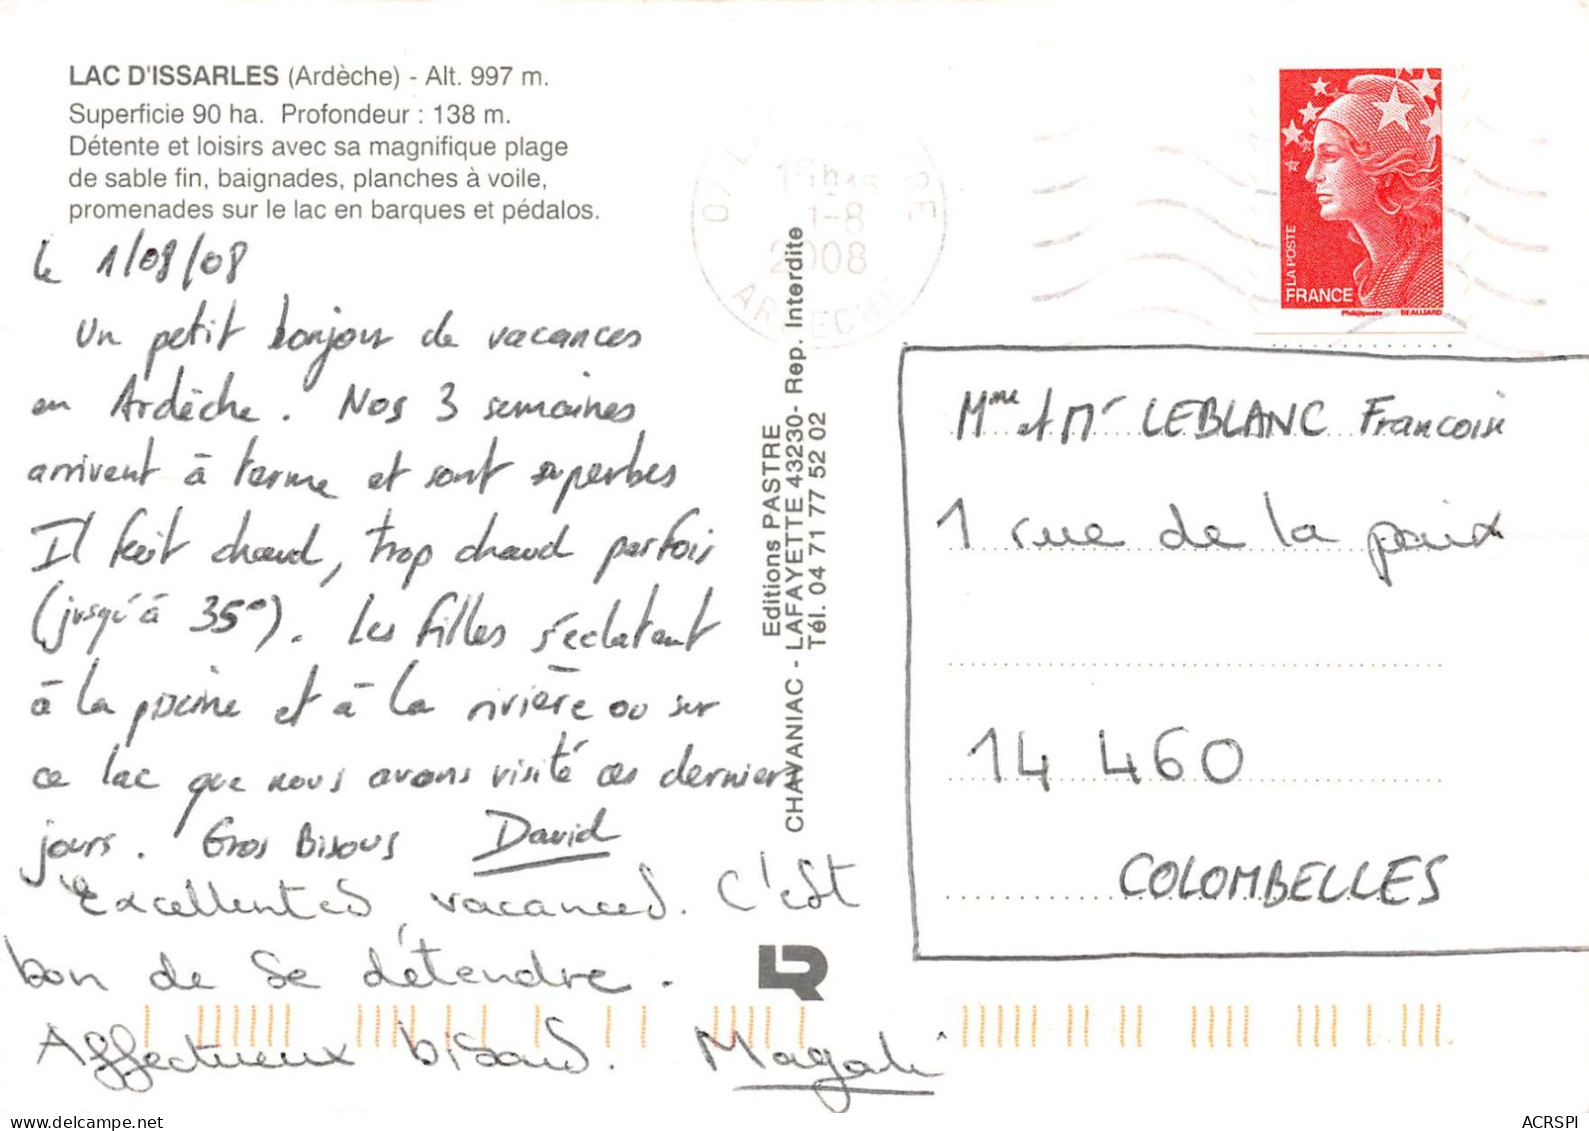 LAC D'ISSARLES (Ardèche) - Alt. 997 m.
Superficie 90 ha. Profondeur : 138 m.
Détente et loisirs avec sa magnifique plage
de sable fin, baignades, planches à voile,
promenades sur le lac en barques et pédalos.
le 1/08/08
Un petit bonjour de vacances
en Ardèche. Nos 3 semaines
arrivent à terme et sont superbes
Il fait chaud, trop chaud parfois
(jusqu'à 35°). Les filles s'eclatent
à la piscine et à la rivière ou sur
ce lac que nous avons visité ces derniers
jours. Gros Bisous David
Excellentes vacances. C'est
bon de se détendre.
Affectueux bisous. Magali
Editions PASTRE
CHAVANIAC - LAFAYETTE 43230- Rep. Interdite
Tél. 04 71 77 52 02
LR
15h
1-8
2008
ARDECHE
LA POSTE
FRANCE
Phil@poste BEAUJARD
Mme et Mr LEBLANC Francois
1 rue de la paix
14 460
COLOMBELLES
ACRSPI